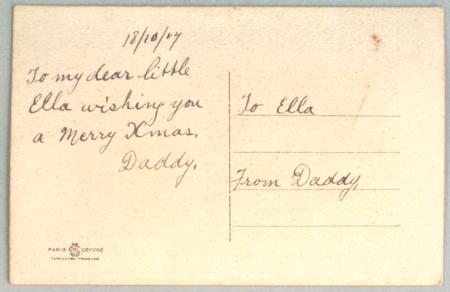 18/10/17
To my dear little
Ella wishing you
a Merry Xmas.
Daddy.
To Ella
From Daddy,
PARIS DÉPOSÉ
FABRICATION FRANÇAISE